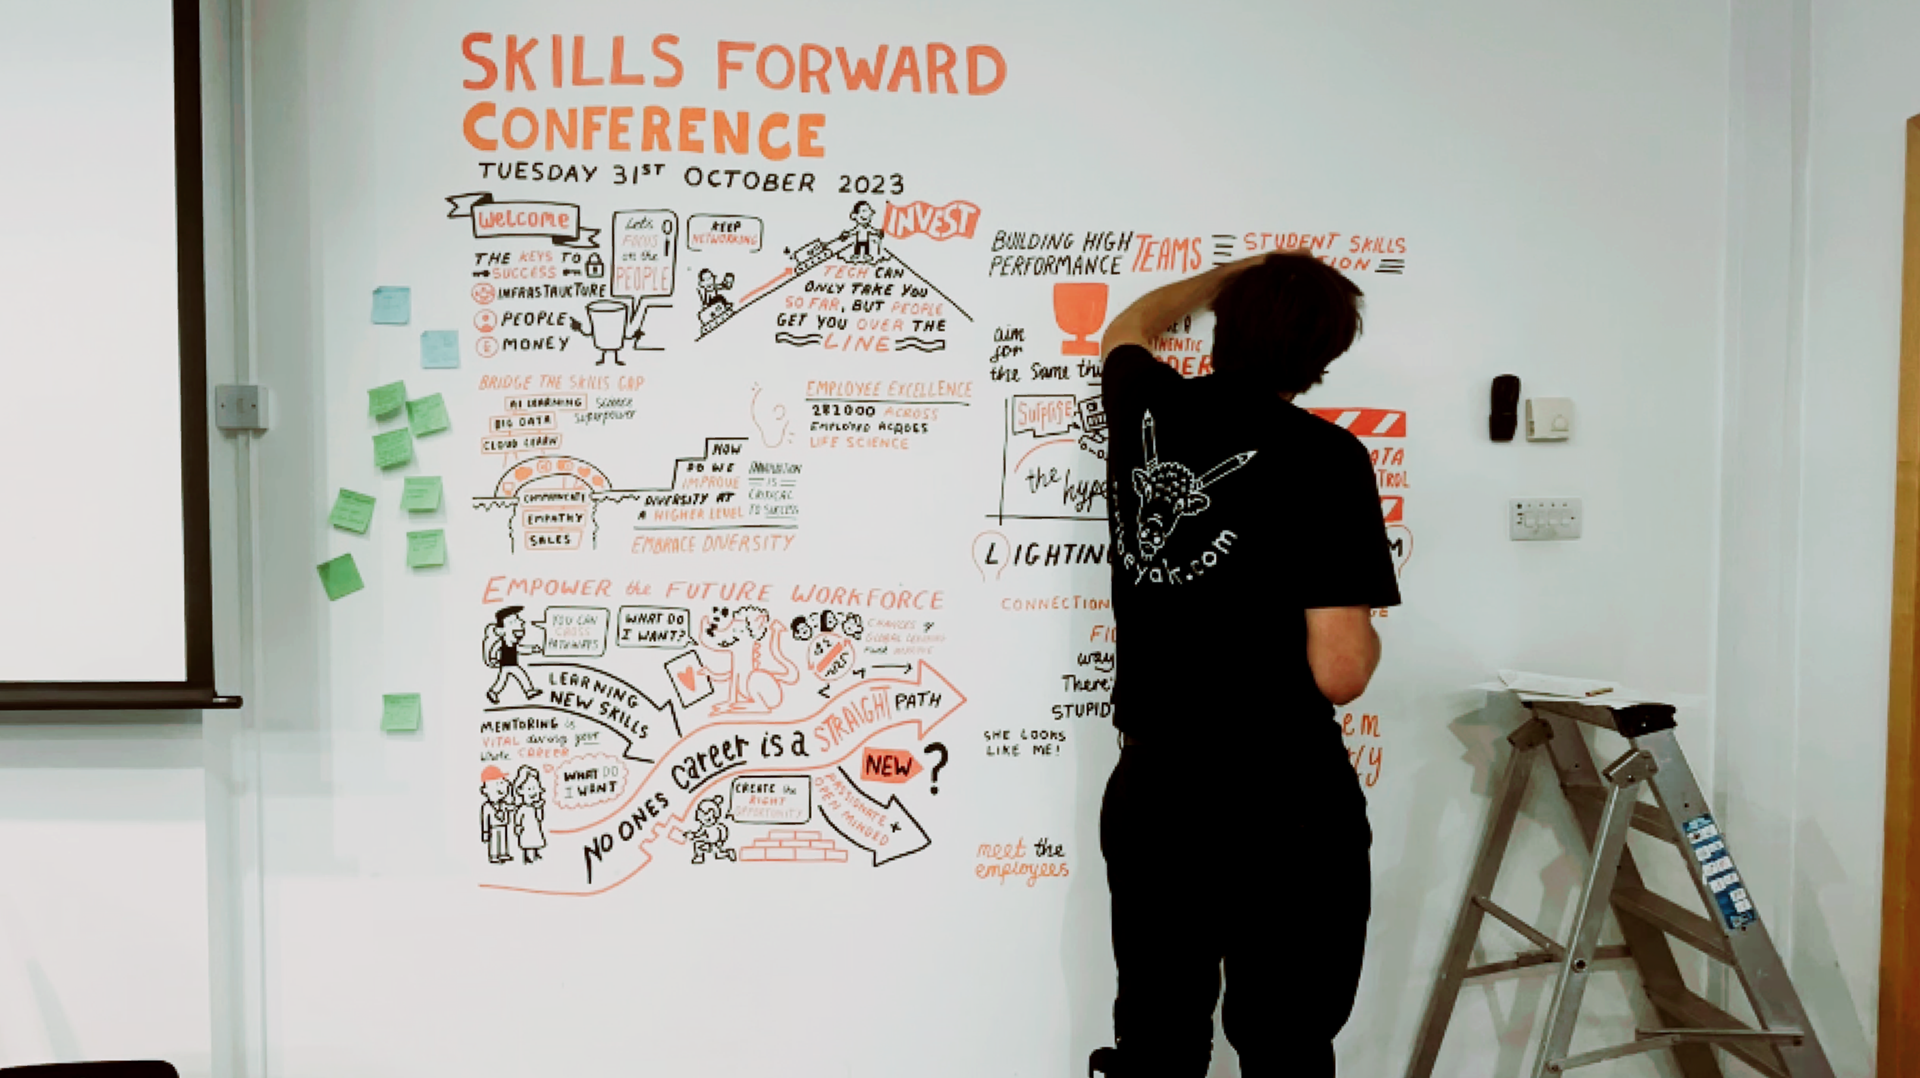 SKILLS FORWARD
CONFERENCE
TUESDAY 31ST OCTOBER 2023
Welcome
THE KEYS TO
SUCCESS
INFRASTRUCTURE
PEOPLE
£ MONEY
Let's
FOCUS
on the
PEOPLE
KEEP
NETWORKING
INVEST
TECH CAN
ONLY TAKE YOU
SO FAR, BUT PEOPLE
GET YOU OVER THE
LINE
BRIDGE THE SKILLS GAP
AI LEARNING
BIG DATA
CLOUD LEARN
Science
Superpower
COMMUNICATE
EMPATHY
SALES
HOW
DO WE
IMPROVE
DIVERSITY AT
A HIGHER LEVEL
EMBRACE DIVERSITY
INNOVATION
IS
CRITICAL
TO SUCCESS
EMPLOYEE EXCELLENCE
282000 ACROSS
EMPLOYED ACROSS
LIFE SCIENCE
EMPOWER the FUTURE WORKFORCE
YOU CAN
CROSS
PATHWAYS
WHAT DO
I WANT?
CHANCES of
GLOBAL LEARNING
LEARNING
NEW SKILLS
MENTORING is
VITAL during your
whole CAREER
WHAT DO
I WANT
NO ONES CAREER is a STRAIGHT PATH
NEW ?
CREATE the
RIGHT
OPPORTUNITY
PASSIONATE +
OPEN MINDED
BUILDING HIGH
PERFORMANCE TEAMS
STUDENT SKILLS
aim
for
the Same
Surprise
the hype
LIGHTIN
CONNECTION
way
There's
STUPID
SHE LOOKS
LIKE ME!
meet the
employees
eyak.com